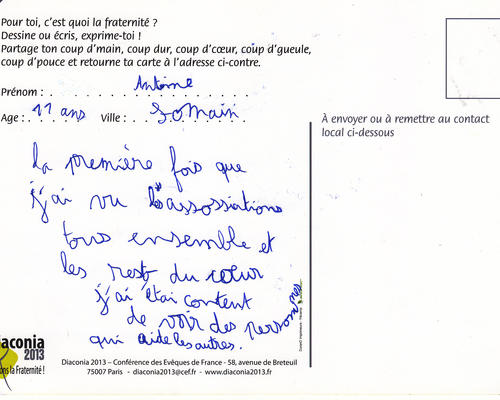 Pour toi, c'est quoi la fraternité ?
Dessine ou écris, exprime-toi !
Partage ton coup d'main, coup dur, coup d'cœur, coup d'gueule,
coup d'pouce et retourne ta carte à l'adresse ci-contre.
Prénom : Antoine
Age : 11 ans Ville : Somain
À envoyer ou à remettre au contact
local ci-dessous
La première fois que
j'ai vu les assossiations
tous ensemble et
les resto du cœur
j'ai étai content
de voir des personnes
qui aide les autres.
Diaconia
2013
ons la Fraternité !
Diaconia 2013 – Conférence des Evêques de France - 58, avenue de Breteuil
75007 Paris - diaconia2013@cef.fr - www.diaconia2013.fr